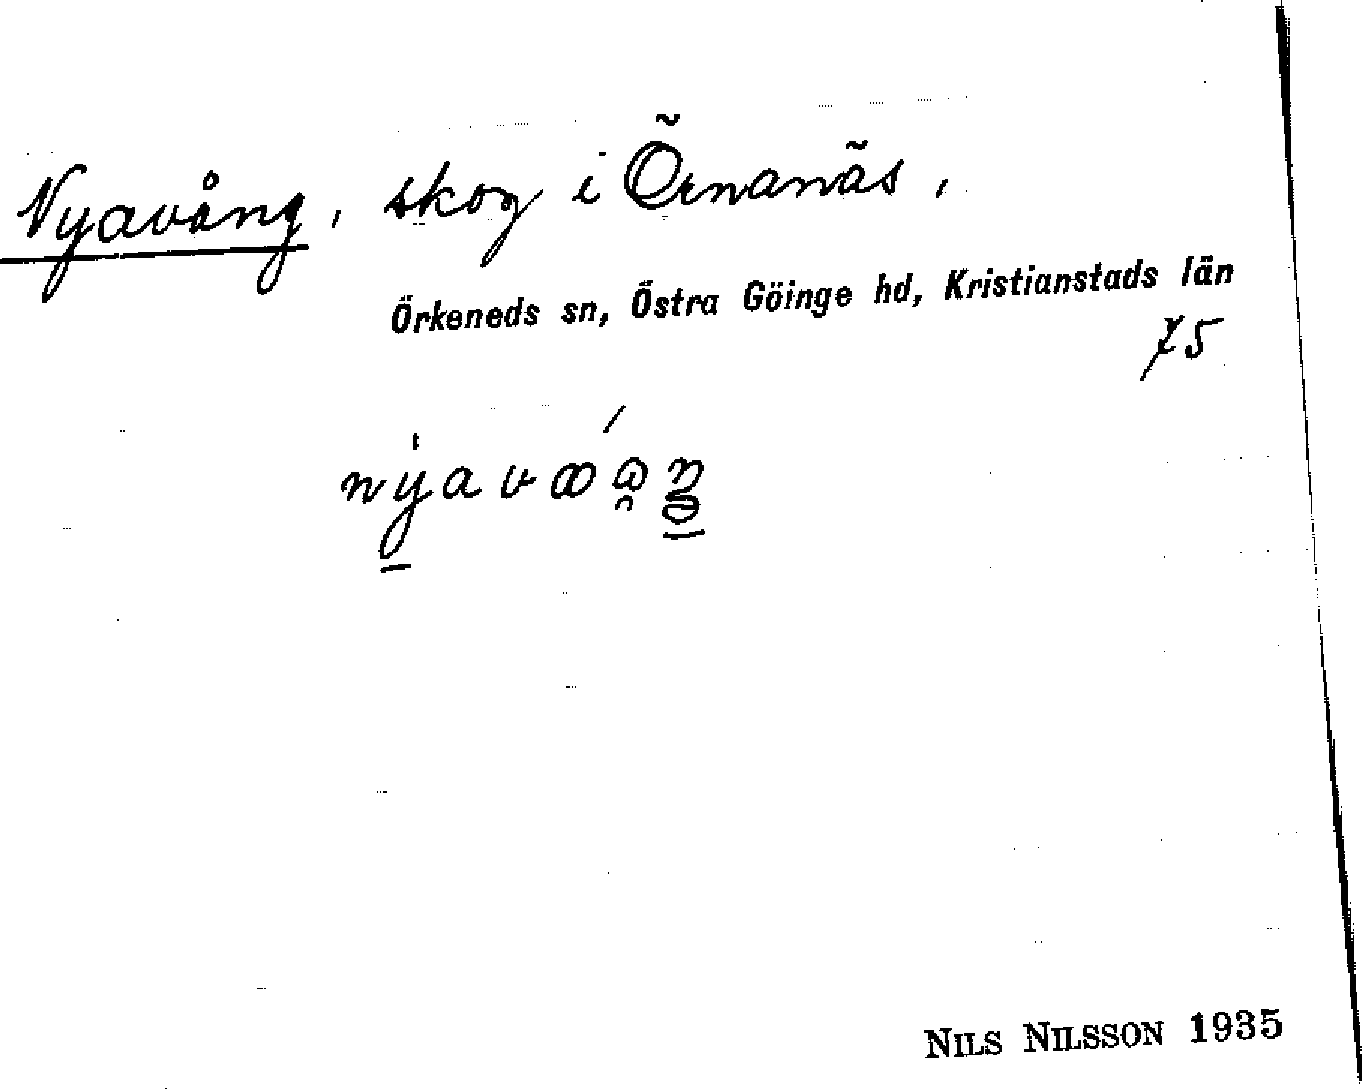 Nyavång, skog i Örnanäs,
Örkeneds sn, Östra Göinge hd, Kristianstads län
75
NILS NILSSON 1935